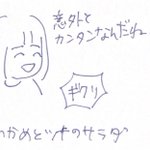 意外と
カンタンなんだね
ギクリ
わかめとツナのサラダ